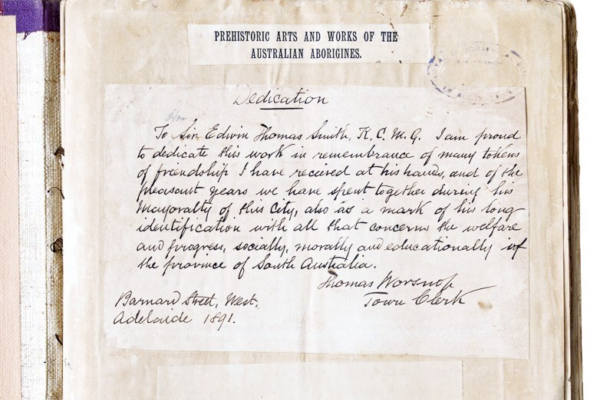 PREHISTORIC ARTS AND WORKS OF THE
AUSTRALIAN ABORIGINES.
Dedication
To Sir Edwin Thomas Smith, K.C.M.G. I am proud
to dedicate this work in remembrance of many tokens
of friendship I have received at his hands, and of the
pleasant years we have spent together during his
Mayoralty of this City, also as a mark of his long
identification with all that concerns the welfare
and progress, socially, morally and educationally of
the province of South Australia.
Thomas Worsnop
Town Clerk
Barnard Street, West.
Adelaide 1891.